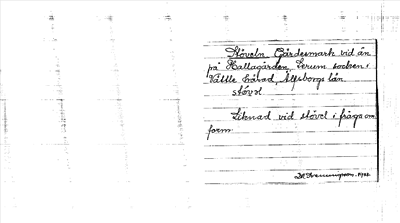 Stöveln Gärdesmark vid ån
på Hallagården, Lerum socken i
Vättle härad, Älfsborgs län
stövel
Liknad vid stövel i fråga om
form.